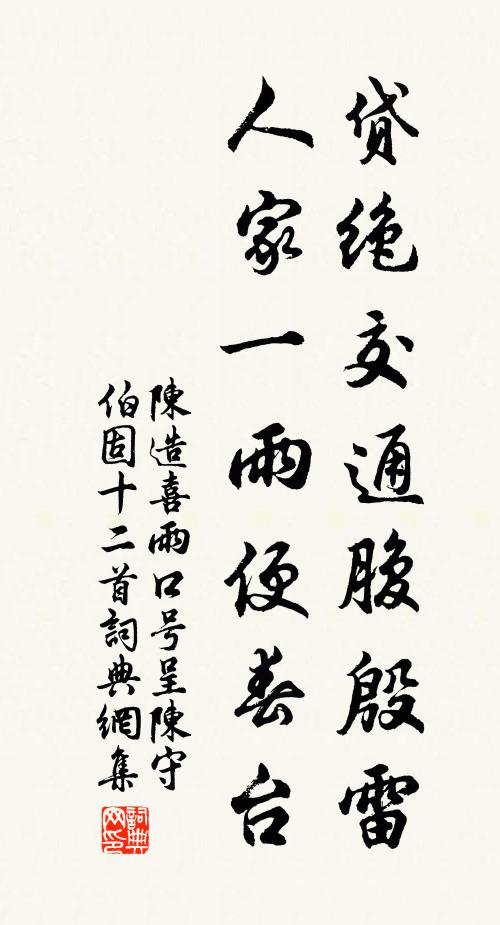 貸絶交通腹殷雷
人家一雨便春台
陳造喜雨口号呈陳守
伯固十二首詞典網集
詞典网印